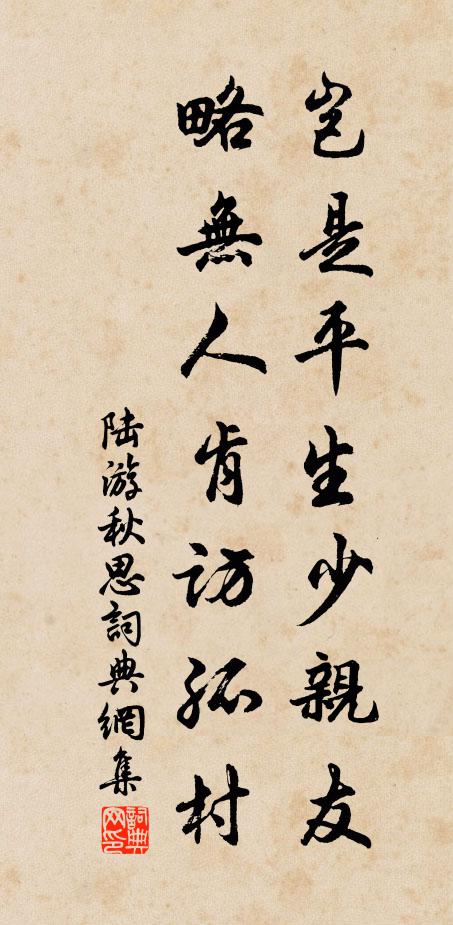 豈是平生少親友
略無人肯訪孤村
陆游秋思詞典網集
詞典网印